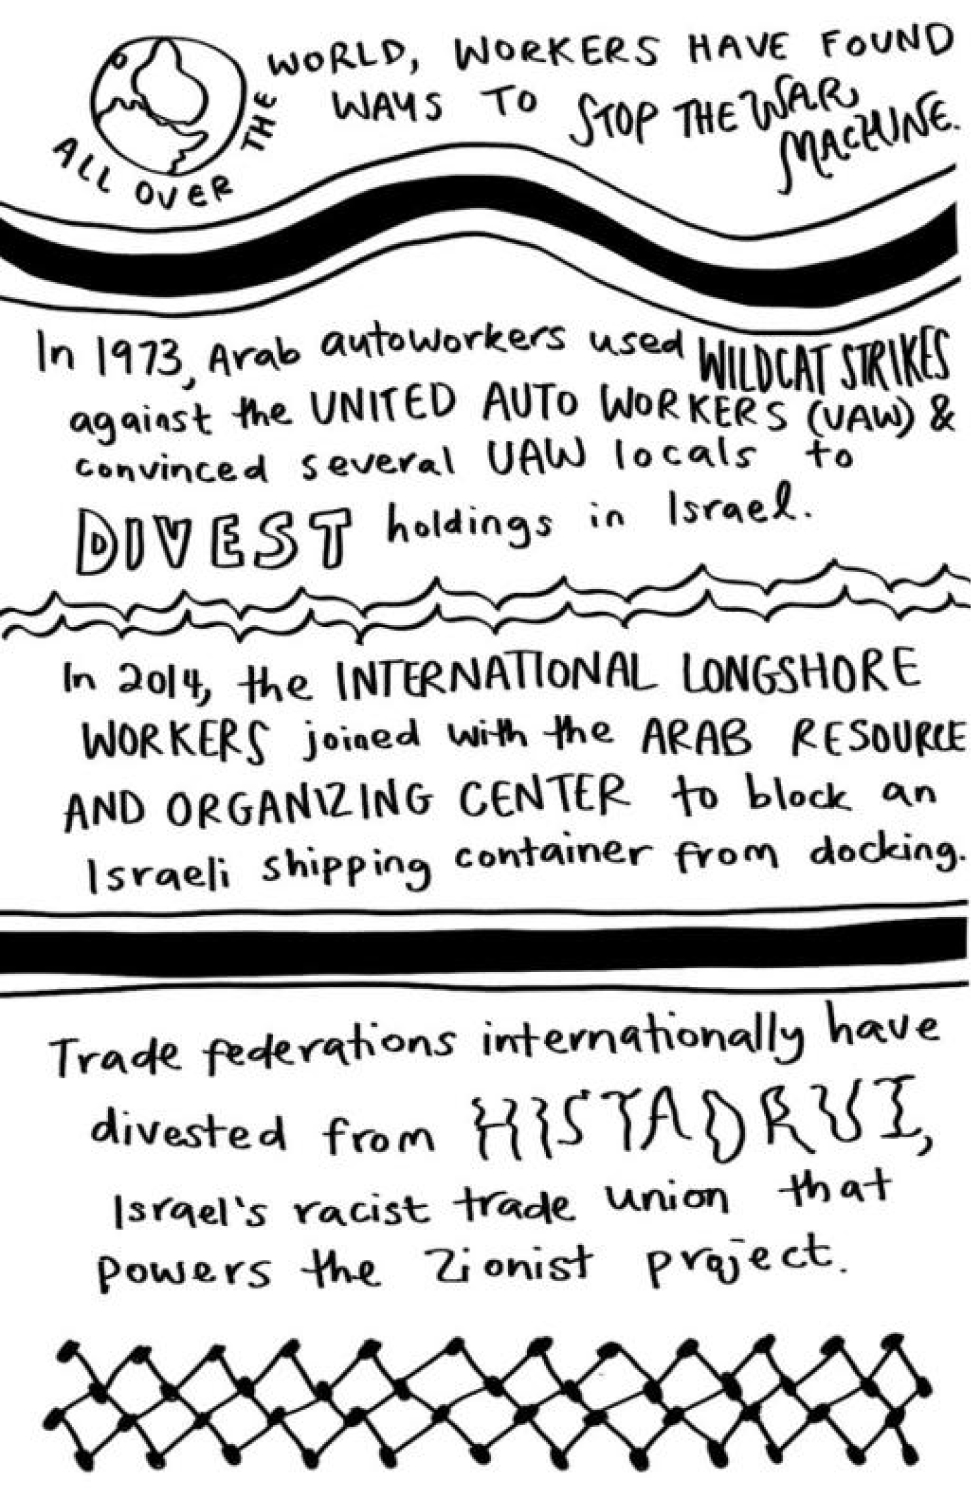 ALL OVER THE WORLD, WORKERS HAVE FOUND
WAYS TO STOP THE WAR
MACHINE.
In 1973, Arab autoworkers used WILDCAT STRIKES
against the UNITED AUTO WORKERS (UAW) &
convinced several UAW locals to
DIVEST holdings in Israel.
In 2014, the INTERNATIONAL LONGSHORE
WORKERS joined with the ARAB RESOURCE
AND ORGANIZING CENTER to block an
Israeli shipping container from docking.
Trade federations internationally have
divested from HISTADRUT,
Israel's racist trade union that
powers the Zionist project.